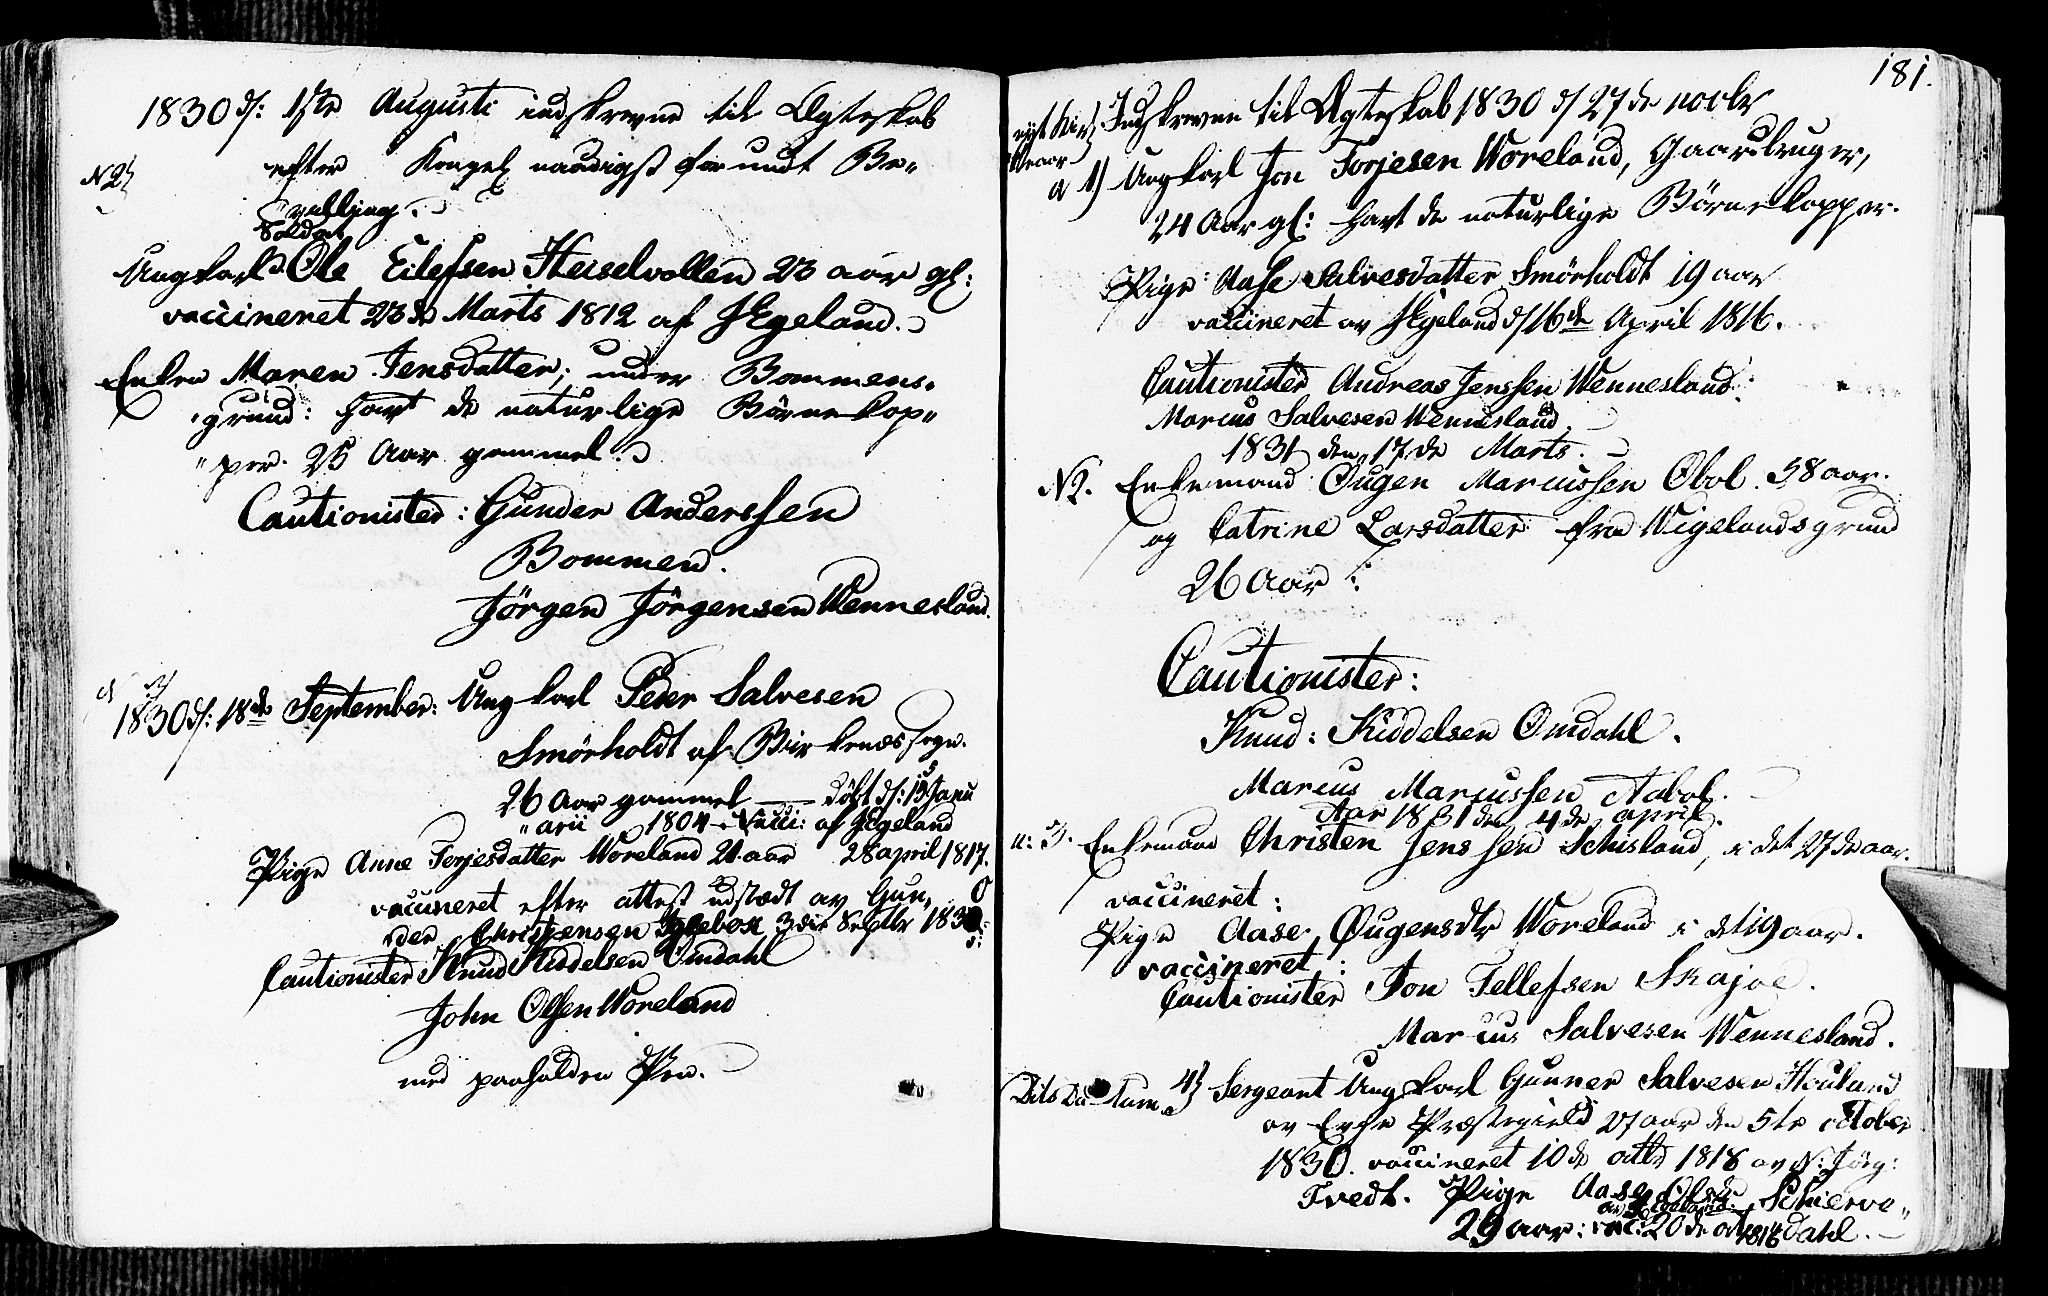 1830 d: 1ste Augusti indskrevne til Ægteskab
No 2
efter Kongel naadigst Be„
„villing.
Soldat
Ungkarl Ole Eilefsen Heiselvollen 23 aar gl:
vaccineret 23de Marts 1812 af HEgeland.
Enken Maren Jensdatter, under Bommens„
„grund: havt de naturlige Børnekop„
„per. 25 Aar gammel.
Cautionister: Gunder Anderssen
Bommen.
Jörgen Jörgensen Wennesland.
1830 d: 18de September: Ungkarl Peder Salvesen
Smörholdt af Birkenæs sogn.
26 Aar gammel — døbt d: 15 Janu
„arii 1804 – Vacci: af HEgeland
Pige Anne Torjesdatter Woreland 21 aar 28 april 1817.
vaccineret efter attest udstædt av Gun„
der Christensen 3die Septbr 1830
Cautionister Knud Kiddelsen Omdahl
John Olsen Woreland
med paaholden Pen.
181.
nyt Kirke
aar
Indskrevne til Ægteskab 1830 d 27de novbr
1) Ungkarl Jon Torjesen Woreland, Gaardbruger,
24 Aar gl: havt de naturlige Börnekopper.
Pige Aase Salvesdatter Smörholdt 19 aar
vaccineret av HEgeland d 16de April 1816.
Cautionister Andreas Jenssen Wennesland:
Marcus Salvesen Wennesland
1831 den 17de Marts.
N2. Enkemand Øugen Marcussen Obol 58 aar.
og Catrine Larsdatter fra Wigelandsgrund
26 Aar:
Cautionister:
Knud: Kiddelsen Omdahl.
Marcus Marcussen Aabol.
Aar 1831 den 4de april.
n: 3. Enkemand Christen Jenssen Schisland, i det 27de aar.
vaccineret:
Pige Aase Øugensdtr Woreland i det 19 aar.
vaccineret:
Cautionister Jon Tellefsen Skajae.
Marcus Salvesen Wennesland.
Dits Datum 4) Sergeant Ungkarl Gunner Salvesen Houland
av Evje Præstegield 27 aar den 5te october
1830. vaccineret 10de octbr 1818 av N: Jörg:
Tvedt. Pige Aase Olsdtr Schierve„
av HEgeland:
29 aar: vac: 20de octbr 1816 dahl.